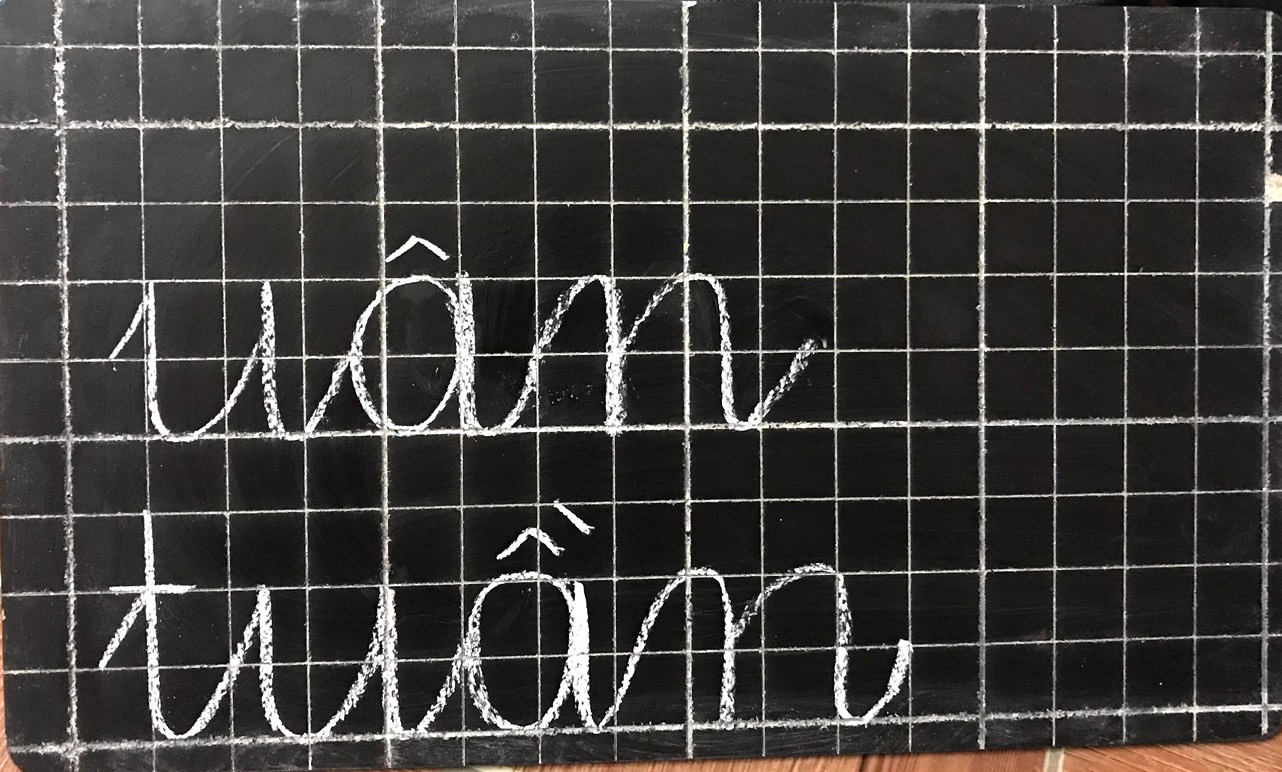 uân
tuần